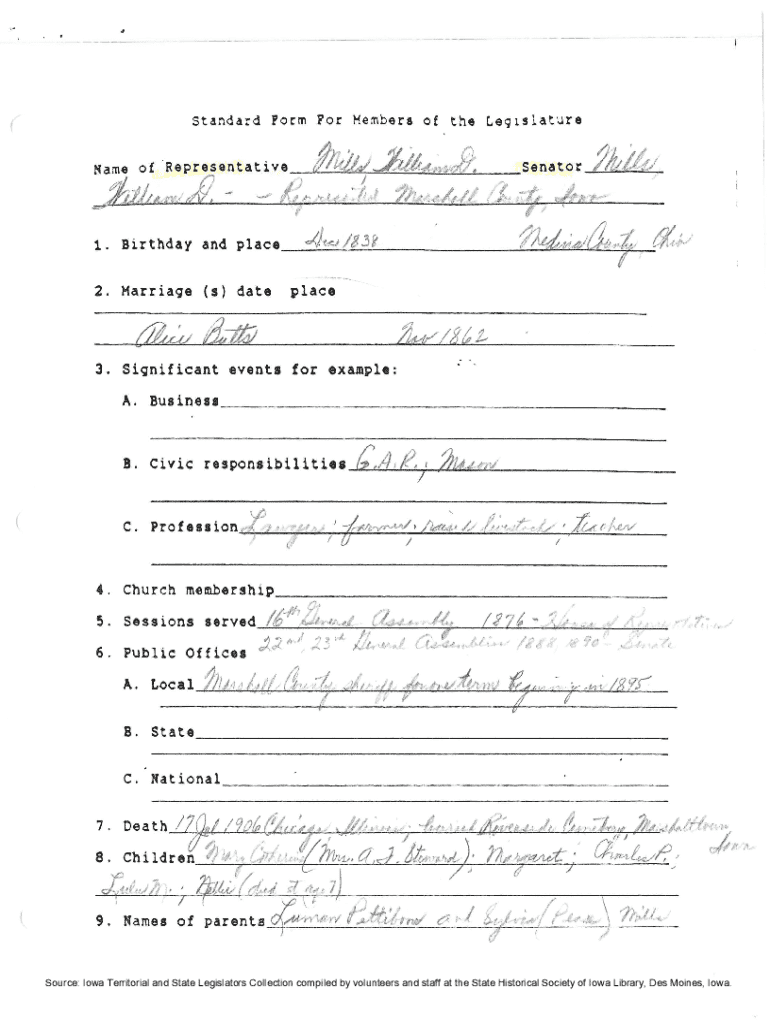 Standard Form For Members of the Legislature
Name of Representative Mills, William D. Senator Mills,
William D. - - Represented Marshall County, Iowa
1. Birthday and place Dec 1838 Medina County, Ohio
2. Marriage (s) date place
Alice Butts Nov 1862
3. Significant events for example:
A. Business
B. Civic responsibilities G.A.R.; Mason
C. Profession Lawyer; farmer; raised livestock; teacher
4. Church membership
5. Sessions served 16th General Assembly 1876 - House of Representatives
22nd, 23rd General Assemblies 1888, 1890 - Senate
6. Public Offices
A. Local Marshall County sheriff for one term beginning in 1895
B. State
C. National
7. Death 17 Jul 1906 Chicago Illinois; buried Riverside Cemetery, Marshalltown
Iowa
8. Children Mary Catherine (Mrs. A. F. Steward); Margaret; Charles P.;
Lulu M.; Nellie (died at age 7)
9. Names of parents Luman Pettibone and Sylvia (Pease) Mills
Source: Iowa Territorial and State Legislators Collection compiled by volunteers and staff at the State Historical Society of Iowa Library, Des Moines, Iowa.